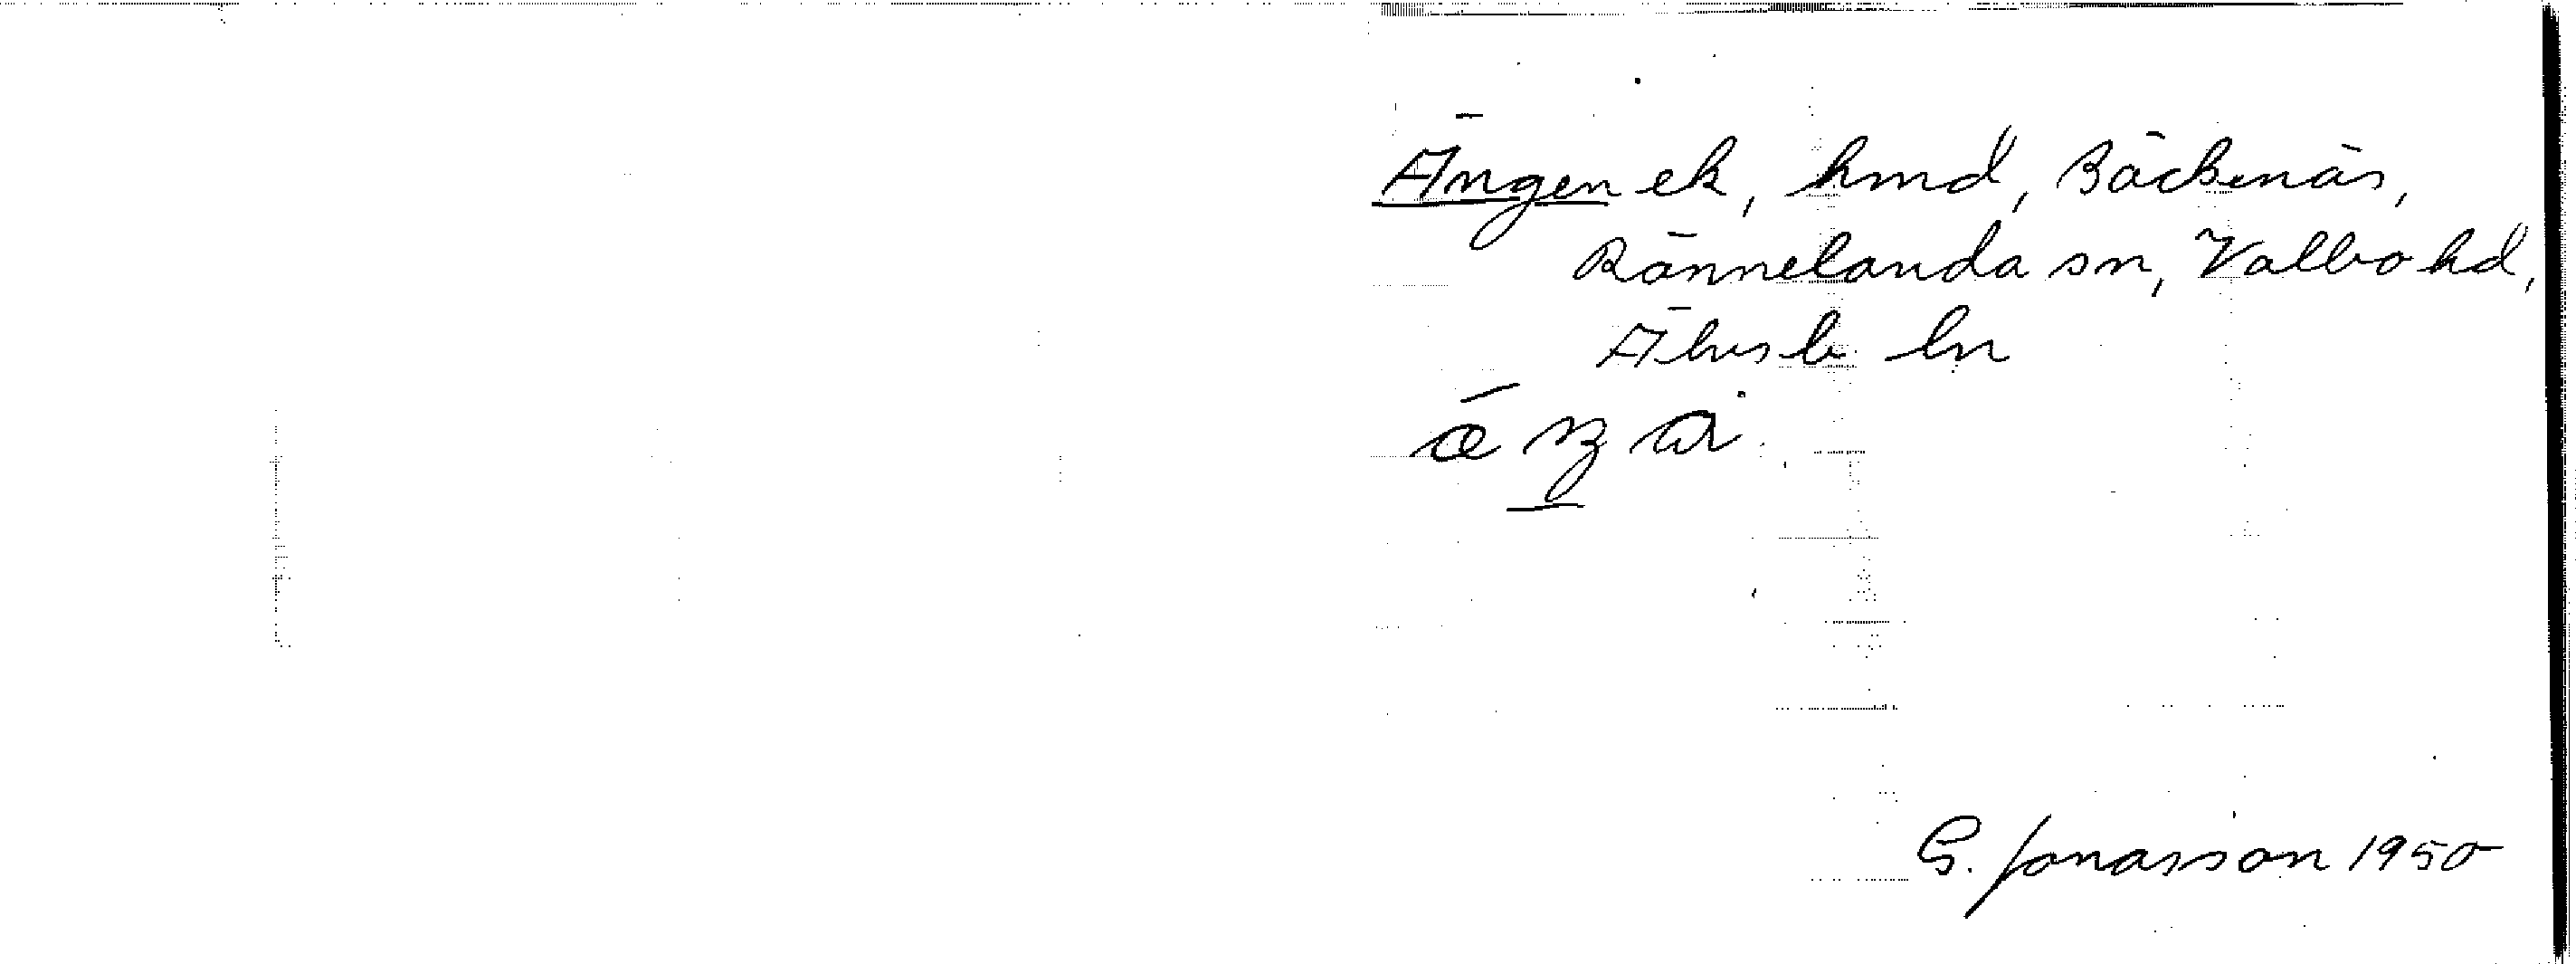 Ängen ek, hmd, Bäckenäs,
Rännelanda sn, Valbo hd,
Älvsb. ln
G. Jonasson 1950